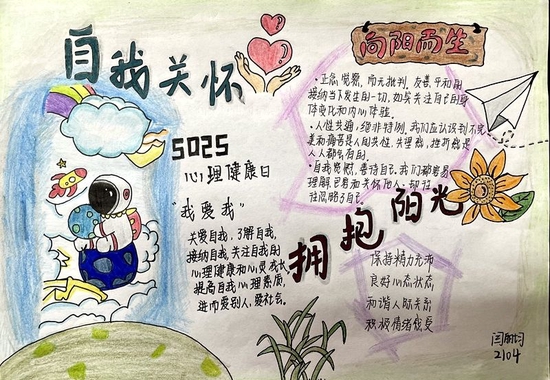 自我关怀
5025
心理健康日
"我爱我"
关爱自我,了解自我,
接纳自我,关注自我的
心理健康和心灵成长
提高自我心理素质,
进而爱别人,爱社会。
向阳而生
·正念,觉察,而无批判,友善,平和的
接纳当下发生的一切,如实关注自己的身
体变化和内心体验。
·人性共通,绝非特例,我们应认识到不完
美和痛苦是人间共性,失望感,挫折感是
人人都会有的。
·自我宽慰,善待自己,我们都容易
理解,包容和关怀他人,却往
往忽略了自己。
拥抱阳光
保持精力充沛
良好心态状态
和谐人际关系
积极情绪感受
2104